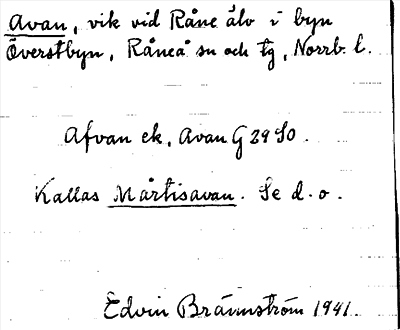 Avan, vik vid Råne älv i byn
Överstbyn, Råneå sn och tg, Norrb. l.
Afvan ek, Avan G 29 SO.
Kallas Mårtisavan. Se d. o.
Edvin Brännström 1941.